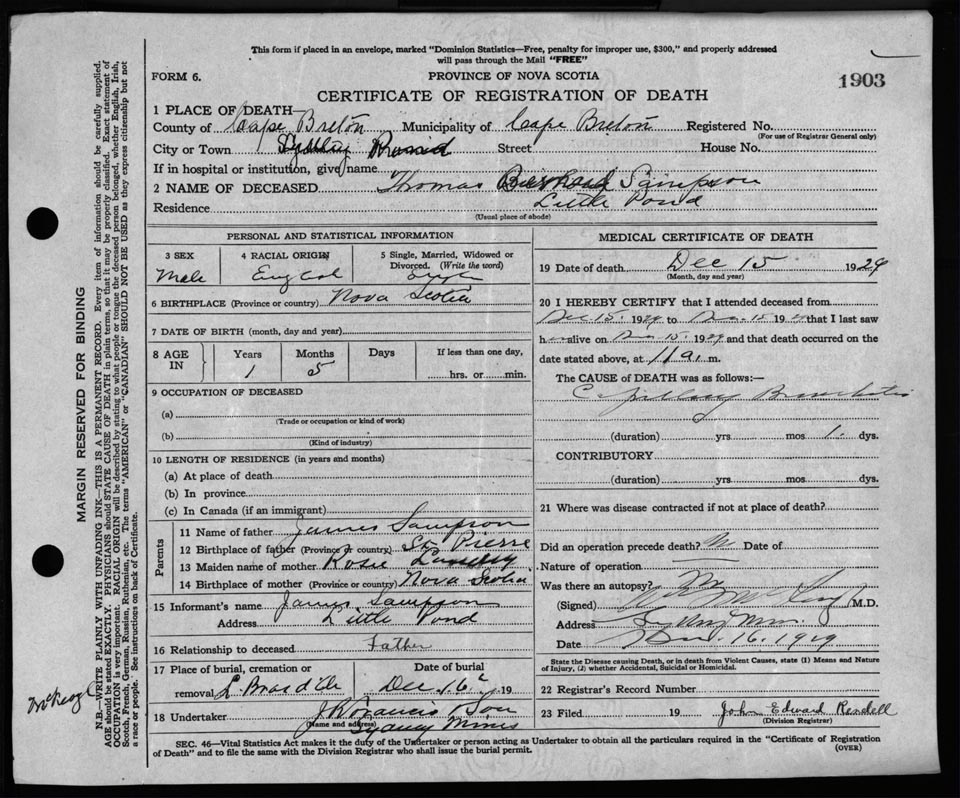 This form if placed in an envelope, marked "Dominion Statistics—Free, penalty for improper use, $300," and properly addressed
will pass through the Mail "FREE"
FORM 6.
PROVINCE OF NOVA SCOTIA
1903
CERTIFICATE OF REGISTRATION OF DEATH
1 PLACE OF DEATH
County of Cape Breton Municipality of Cape Breton Registered No.
(For use of Registrar General only)
City or Town Street House No.
If in hospital or institution, give name
2 NAME OF DECEASED Thomas Sampson
Residence Little Pond
(Usual place of abode)
PERSONAL AND STATISTICAL INFORMATION
3 SEX Male
4 RACIAL ORIGIN
5 Single, Married, Widowed or Divorced. (Write the word)
6 BIRTHPLACE (Province or country) Nova Scotia
7 DATE OF BIRTH (month, day and year)
8 AGE IN Years 1 Months 5 Days If less than one day, hrs. or min.
9 OCCUPATION OF DECEASED
(a)
(Trade or occupation or kind of work)
(b)
(Kind of industry)
10 LENGTH OF RESIDENCE (in years and months)
(a) At place of death
(b) In province
(c) In Canada (if an immigrant)
Parents
11 Name of father James Sampson
12 Birthplace of father (Province or country) St. Pierre
13 Maiden name of mother Rosie
14 Birthplace of mother (Province or country) Nova Scotia
15 Informant's name James Sampson
Address Little Pond
16 Relationship to deceased Father
17 Place of burial, cremation or removal L. Bras d'Or
Date of burial Dec 16 19
18 Undertaker & Son
(Name and address) Sydney Mines
MEDICAL CERTIFICATE OF DEATH
19 Date of death Dec 15 1929
(Month, day and year)
20 I HEREBY CERTIFY that I attended deceased from
Dec 15. 1929 to Dec. 15 1929 that I last saw
h alive on Dec 15 1929 and that death occurred on the
date stated above, at 11 a. m.
The CAUSE of DEATH was as follows:—
Capillary Bronchitis
(duration) yrs mos 1 dys.
CONTRIBUTORY
(duration) yrs mos dys.
21 Where was disease contracted if not at place of death?
Did an operation precede death? No Date of
Nature of operation —
Was there an autopsy? No
(Signed) M.D.
Address Sydney Mines
Date Dec. 16. 1929
State the Disease causing Death, or in death from Violent Causes, state (1) Means and Nature
of Injury, (2) whether Accidental, Suicidal or Homicidal.
22 Registrar's Record Number
23 Filed 19 John Edward Rendell
(Division Registrar)
SEC. 46—Vital Statistics Act makes it the duty of the Undertaker or person acting as Undertaker to obtain all the particulars required in the "Certificate of Registration
of Death" and to file the same with the Division Registrar who shall issue the burial permit.
(OVER)
MARGIN RESERVED FOR BINDING
N.B.—WRITE PLAINLY WITH UNFADING INK—THIS IS A PERMANENT RECORD. Every item of information should be carefully supplied.
AGE should be stated EXACTLY. PHYSICIANS should STATE CAUSE OF DEATH in plain terms, so that it may be properly classified. Exact statement of
OCCUPATION is very important. RACIAL ORIGIN will be described by stating to what people or tongue the deceased person belonged, whether English, Irish,
Scotch, French, German, Russian, Ruthenian, etc. The terms "AMERICAN" or "CANADIAN" SHOULD NOT BE USED as they express citizenship but not
a race or people. See instructions on back of Certificate.